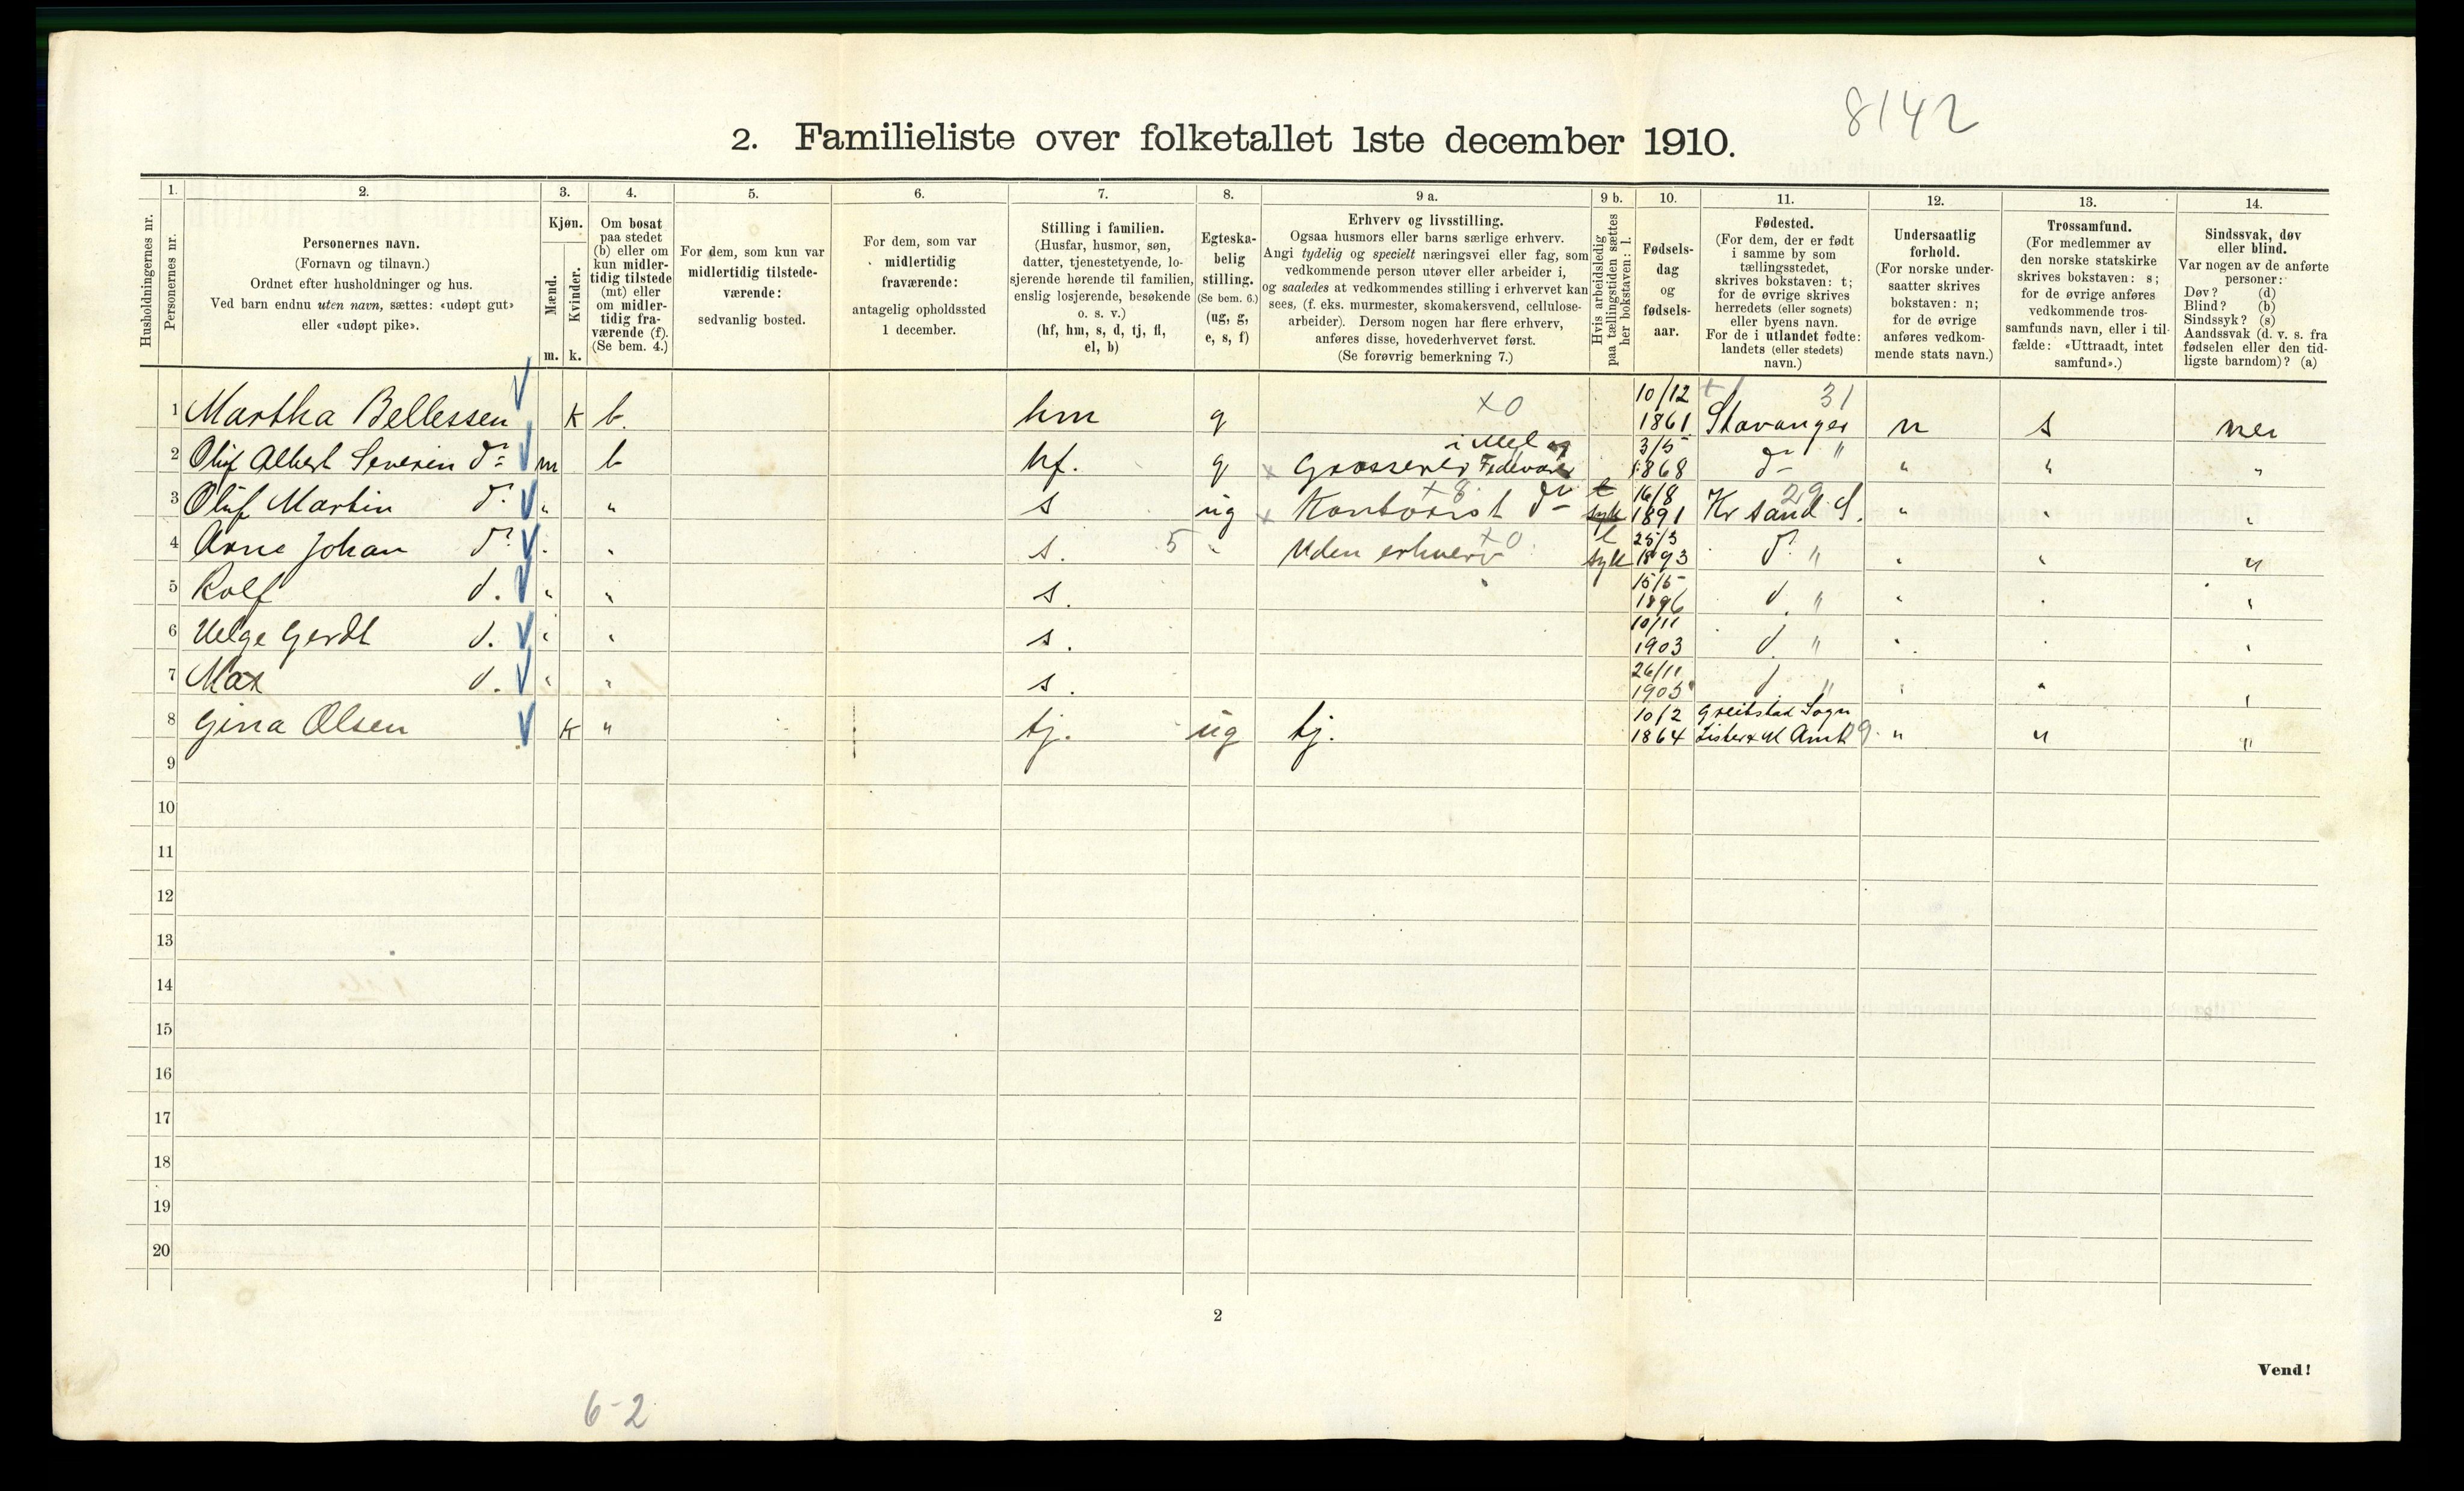 8142
2. Familieliste over folketallet 1ste december 1910.
Husholdningernes nr.
1.
Personernes nr.
2.
Personernes navn.
(Fornavn og tilnavn.)
Ordnet efter husholdninger og hus.
Ved barn endnu uten navn, sættes: «udøpt gut»
eller «udøpt pike».
3.
Kjøn.
Mænd.
Kvinder.
m. k.
4.
Om bosat
paa stedet
(b) eller om
kun midler-
tidig tilstede
(mt) eller
om midler-
tidig fra-
værende (f).
(Se bem. 4.)
5.
For dem, som kun var
midlertidig tilstede-
værende:
sedvanlig bosted.
6.
For dem, som var
midlertidig
fraværende:
antagelig opholdssted
1 december.
7.
Stilling i familien.
(Husfar, husmor, søn,
datter, tjenestetyende, lo-
sjerende hørende til familien,
enslig losjerende, besøkende
o. s. v.)
(hf, hm, s, d, tj, fl,
el, b)
8.
Egteska-
belig
stilling.
(Se bem. 6.)
(ug, g,
e, s, f)
9 a.
Erhverv og livsstilling.
Ogsaa husmors eller barns særlige erhverv.
Angi tydelig og specielt næringsvei eller fag, som
vedkommende person utøver eller arbeider i,
og saaledes at vedkommendes stilling i erhvervet kan
sees, (f. eks. murmester, skomakersvend, cellulose-
arbeider). Dersom nogen har flere erhverv,
anføres disse, hovederhvervet først.
(Se forøvrig bemerkning 7.)
9 b.
Hvis arbeidsledig
paa tællingstiden sættes
her bokstaven: l.
10.
Fødsels-
dag
og
fødsels-
aar.
11.
Fødested.
(For dem, der er født
i samme by som
tællingsstedet,
skrives bokstaven: t;
for de øvrige skrives
herredets (eller sognets)
eller byens navn.
For de i utlandet fødte:
landets (eller stedets)
navn.)
12.
Undersaatlig
forhold.
(For norske under-
saatter skrives
bokstaven: n;
for de øvrige
anføres vedkom-
mende stats navn.)
13.
Trossamfund.
(For medlemmer av
den norske statskirke
skrives bokstaven: s;
for de øvrige anføres
vedkommende tros-
samfunds navn, eller i til-
fælde: «Uttraadt, intet
samfund».)
14.
Sindssvak, døv
eller blind.
Var nogen av de anførte
personer:
Døv? (d)
Blind? (b)
Sindssyk? (s)
Aandssvak (d. v. s. fra
fødselen eller den tid-
ligste barndom)? (a)
1 Martha Bellessen k b. hm g x0 10/12 1861 Stavanger 31 n s nei
2 Oluf Albert Severin do m b hf. g x Grosserer i Mel og Fedevarer 3/5 1868 do " " " "
3 Oluf Martin do " " s ug x Kontorist do x8 l syk 16/8 1891 Kr sand S. 29 " " "
4 Arne Johan do " " s. 5 " Uden erhverv x0 l syk 25/3 1893 do " " " "
5 Rolf d. " " s. 15/5 1896 d. " " " "
6 Helge Gerdt d. " " s. 10/11 1903 d. " " " "
7 Max d. " " s. 26/11 1905 d " " " "
8 Gina Olsen k " tj. ug tj. 10/2 1864 Greibstad Sogn Lister & M Amt 9 " " "
9
10
11
12
13
14
15
16
17
18
19
20
2
Vend!
6-2